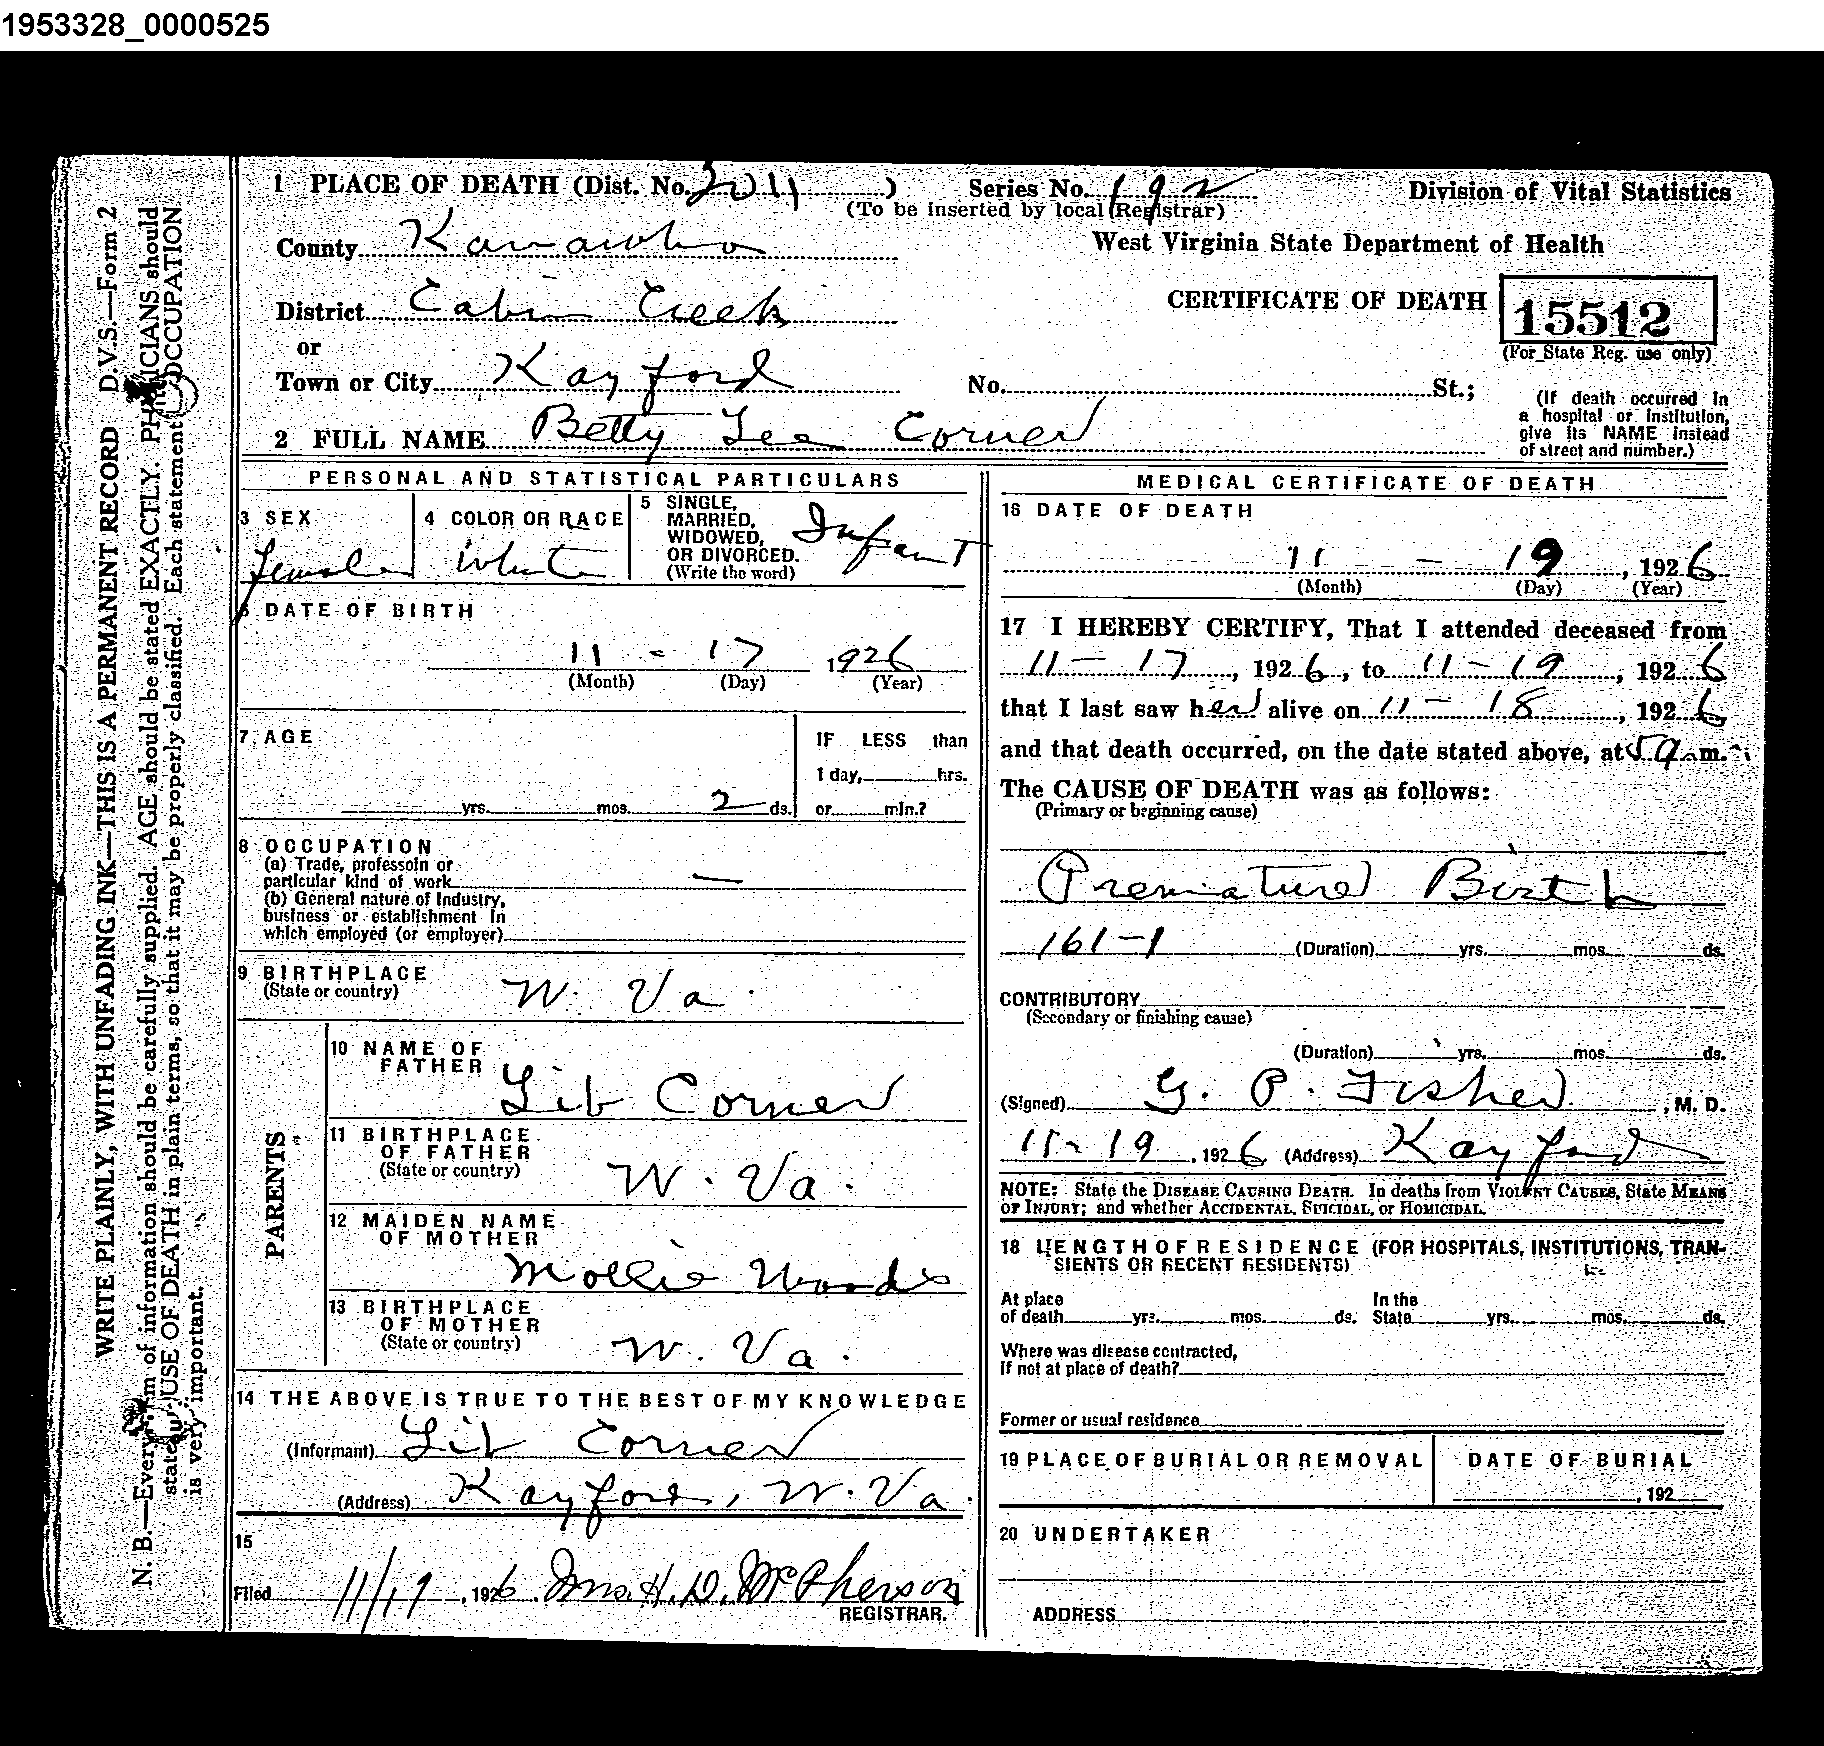 1953328_0000525
1 PLACE OF DEATH (Dist. No. 2011) Series No. 192 Division of Vital Statistics
(To be inserted by local Registrar)
County Kanawha West Virginia State Department of Health
District Cabin Creek CERTIFICATE OF DEATH 15512
or (For State Reg. use only)
Town or City Kayford No. St.;
(If death occurred in
a hospital or institution,
give its NAME instead
of street and number.)
2 FULL NAME Betty Lee Corner
PERSONAL AND STATISTICAL PARTICULARS
3 SEX
Female
4 COLOR OR RACE
White
5 SINGLE,
MARRIED,
WIDOWED,
OR DIVORCED.
(Write the word)
Infant
6 DATE OF BIRTH
11 - 17 1926
(Month) (Day) (Year)
7. AGE
yrs. mos. 2 ds.
IF LESS than
1 day, hrs.
or min.?
8 OCCUPATION
(a) Trade, professoin or
particular kind of work —
(b) General nature of Industry,
business or establishment in
which employed (or employer)
9 BIRTHPLACE
(State or country) W. Va.
PARENTS
10 NAME OF
FATHER Lib Corner
11 BIRTHPLACE
OF FATHER
(State or country) W. Va.
12 MAIDEN NAME
OF MOTHER
Mollie Woods
13 BIRTHPLACE
OF MOTHER
(State or country) W. Va.
14 THE ABOVE IS TRUE TO THE BEST OF MY KNOWLEDGE
(Informant) Lib Corner
(Address) Kayford, W. Va.
15
Filed 11/19, 1926 Jno. H. D. McPherson
REGISTRAR.
MEDICAL CERTIFICATE OF DEATH
16 DATE OF DEATH
11 - 19, 1926
(Month) (Day) (Year)
17 I HEREBY CERTIFY, That I attended deceased from
11 - 17, 1926, to 11 - 19, 1926
that I last saw her alive on 11 - 18, 1926
and that death occurred, on the date stated above, at 5 a m.
The CAUSE OF DEATH was as follows:
(Primary or beginning cause)
Premature Birth
161-1 (Duration) yrs. mos. ds.
CONTRIBUTORY
(Secondary or finishing cause)
(Duration) yrs. mos. ds.
(Signed) G. P. Fisher, M. D.
11-19, 1926 (Address) Kayford
NOTE: State the DISEASE CAUSING DEATH. In deaths from VIOLENT CAUSES, State MEANS
OF INJURY; and whether ACCIDENTAL, SUICIDAL, or HOMICIDAL.
18 LENGTH OF RESIDENCE (FOR HOSPITALS, INSTITUTIONS, TRAN-
SIENTS OR RECENT RESIDENTS)
At place
of death yrs. mos. ds.
In the
State yrs. mos. ds.
Where was disease contracted,
if not at place of death?
Former or usual residence
19 PLACE OF BURIAL OR REMOVAL DATE OF BURIAL
, 192
20 UNDERTAKER
ADDRESS
WRITE PLAINLY, WITH UNFADING INK—THIS IS A PERMANENT RECORD D.V.S.—Form 2
N. B.—Every item of information should be carefully supplied. AGE should be stated EXACTLY. PHYSICIANS should
state CAUSE OF DEATH in plain terms, so that it may be properly classified. Each statement OCCUPATION
is very important.